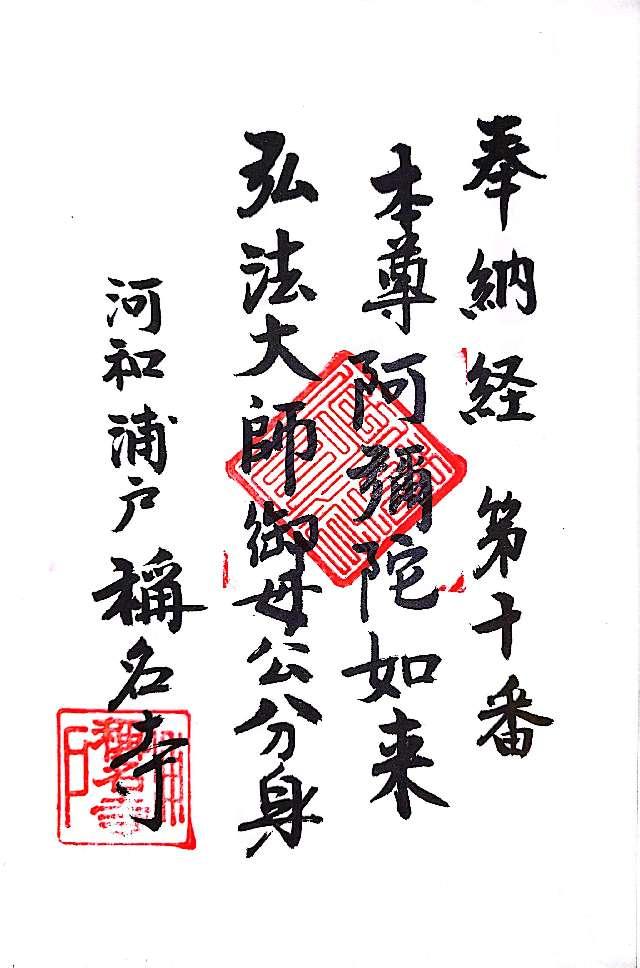 奉納経 第十番
本尊阿彌陀如来
弘法大師御母公分身
河和浦戸 稱名寺